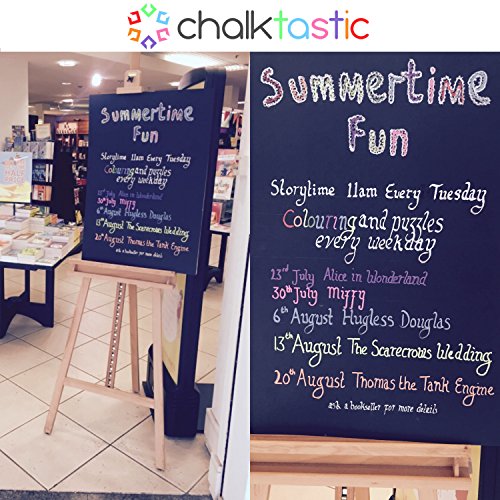 chalktastic
Summertime
Fun
Storytime 11am Every Tuesday
Colouring and puzzles
every weekday
23rd July Alice in Wonderland
30th July Miffy
6th August Hugless Douglas
13th August The Scarecrows Wedding
20th August Thomas the Tank Engine
ask a bookseller for more details
Summertime
Fun
Storytime 11am Every Tuesday
Colouring and puzzles
every weekday
23rd July Alice in Wonderland
30th July Miffy
6th August Hugless Douglas
13th August The Scarecrows Wedding
20th August Thomas the Tank Engine
ask a bookseller for more details